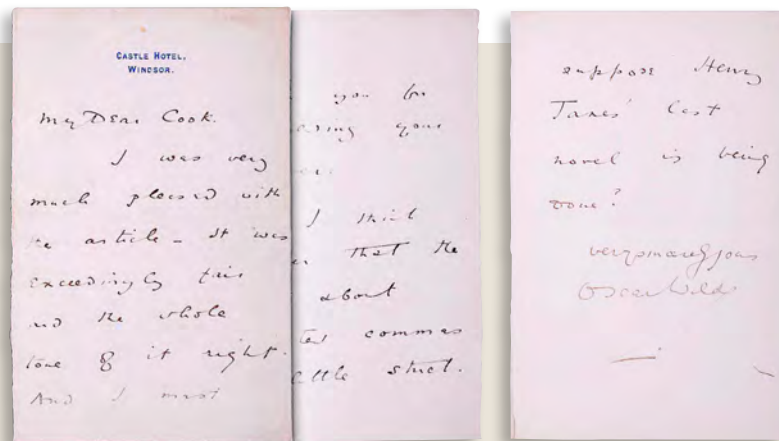 CASTLE HOTEL,
WINDSOR.
My Dear Cook.
I was very
much pleased with
the article - It was
exceedingly fair
and the whole
tone of it right.
And I must
you for
your
I think
that the
about
commas
little strict.
suppose Henry
James' last
novel is being
done?
Oscar Wilde